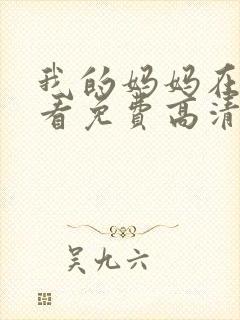 我的妈妈在
看免费高清
吴九六